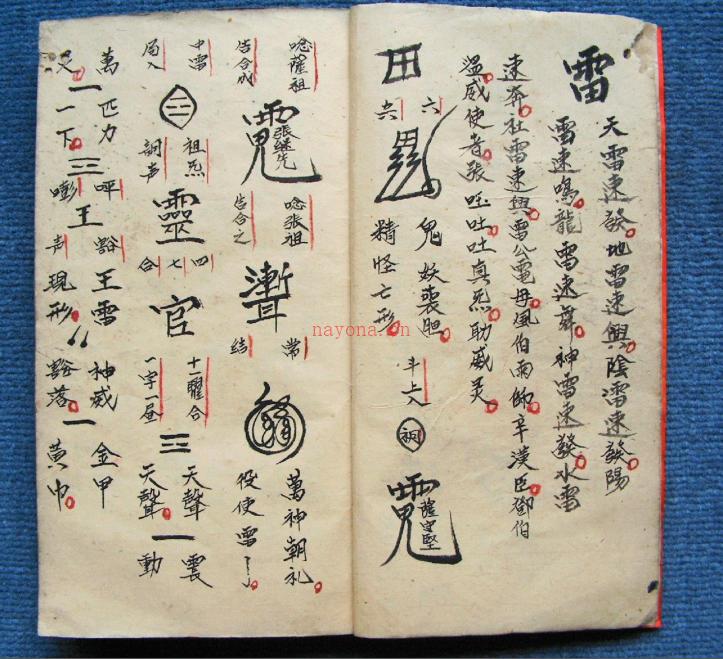 雷
天雷速發地雷速興陰雷速發陽
雷速鳴龍雷速舞神雷速發水雷
速奔社雷速興雷公電母風伯雨師辛漢臣鄧伯
溫威使者張
吐吐真炁助威灵
田
六
鬼妖喪胆
精怪亡形
斗上入
薩守堅
唸薩祖
告合成
張继先
唸張祖
告合之
常
結
萬神朝礼
役使雷
中雷
局入
三
祖炁
詞声
靈
四
七
合
官
十二曜合
一字一昼
三
天聲
天聲
一
震
動
萬匹力
又一下
一
三
呼
王
谿
声
王雷
現形
神威
谿落
一
金甲
黃巾
nayona.cn